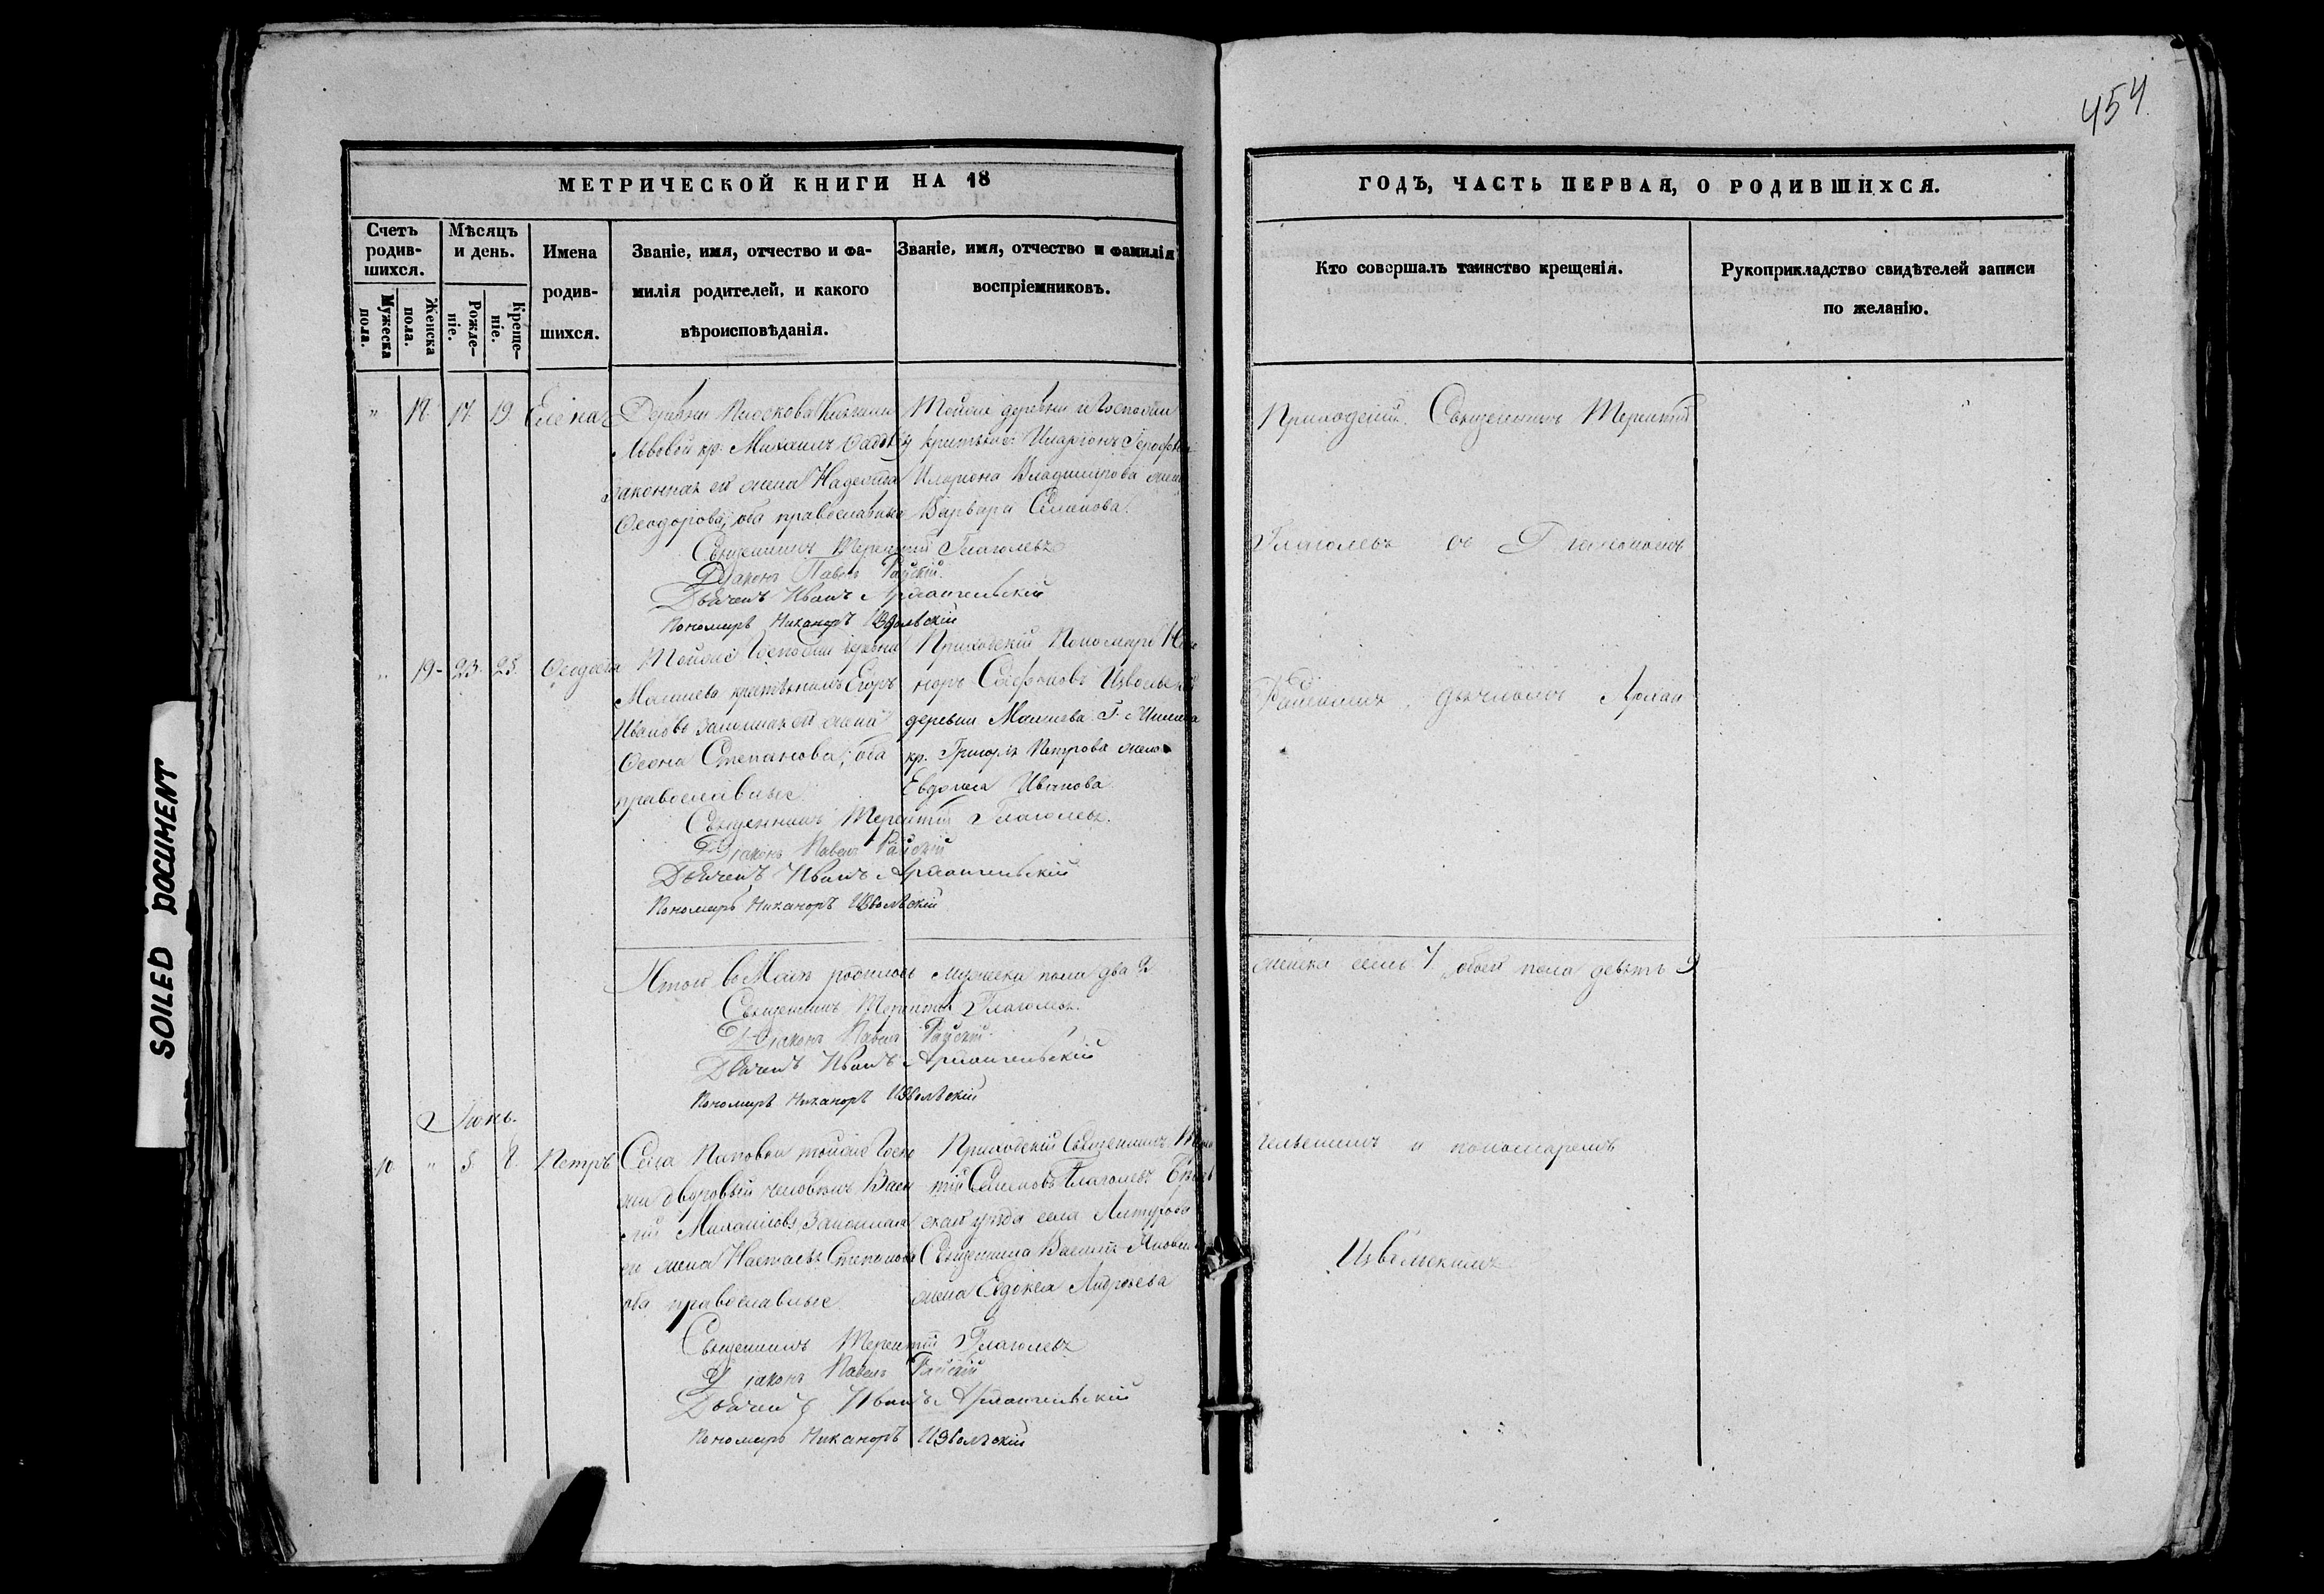 454
МЕТРИЧЕСКОЙ КНИГИ НА 18
Счетъ родив-шихся.
Мужеска пола.
Женска пола.
Мѣсяцъ и день.
Рожде-ніе.
Креще-ніе.
Имена родив-шихся.
Званіе, имя, отчество и фа-
милія родителей, и какого
вѣроисповѣданія.
Званіе, имя, отчество и фамилія
воспріемниковъ.
" 18. 17. 19 Елена
Деревни Княжны
Львовой кр. Михаилъ
законная его жена Надежда
Феодорова, оба православные
Тойже деревни и Госпожи
Иларіонъ
Иларіона Владимірова жена
Варвара Семенова.
Священникъ Терентій Глаголевъ
Діаконъ Павелъ Райскій.
Дьячекъ Иванъ Архангельскій
Пономарь Никаноръ Извольскій
" 19 - 23. 25. Феодосія
Тойже Госпожи деревни
Малиева крестьянинъ Егоръ
Ивановъ законная его жена
Степанова, оба
православные.
Приходскій Пономарь Ника
норъ Извольскій
деревни Малиева Г.
кр. Григорія Петрова жена
Евдокия Иванова
Священникъ Терентій Глаголевъ.
Діаконъ Павелъ Райскій
Дьячекъ Иванъ Архангельскій
Пономарь Никаноръ Извольскій
Итого въ Маѣ родилось мужеска пола два 2
Священникъ Терентій Глаголевъ.
Діаконъ Павелъ Райскій.
Дьячекъ Иванъ Архангельскій
Пономарь Никаноръ Извольскій
Іюнь.
10. " 5. 8. Петръ
Села тойже Госпо
жи дворовый человѣкъ Васи
лій Михаиловъ, законная
его жена Настасья Степанова
оба православные
Приходскій Священникъ Терен
тій Семеновъ Глаголевъ
скаго уѣзда села
Священника Василія
жена Евдокія Андреева
Священникъ Терентій Глаголевъ
Діаконъ Павелъ Райскій
Дьячекъ Иванъ Архангельскій
Пономарь Никаноръ Извольскій
ГОДЪ, ЧАСТЬ ПЕРВАЯ, О РОДИВШИХСЯ.
Кто совершалъ таинство крещенія.
Рукоприкладство свидѣтелей записи
по желанію.
Приходскій Священникъ Терентій
Глаголевъ съ Діакономъ
Райскимъ, дьячкомъ Архан
женска семь 7. обоего пола девять 9
гельскимъ и пономаремъ
Извольскимъ
SOILED DOCUMENT